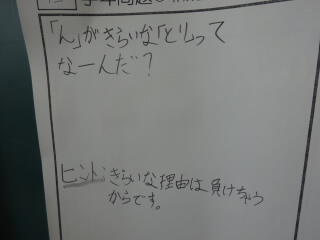 「ん」がきらいな「とり」って
なーんだ？
ヒント：きらいな理由は負けちゃう
からです。